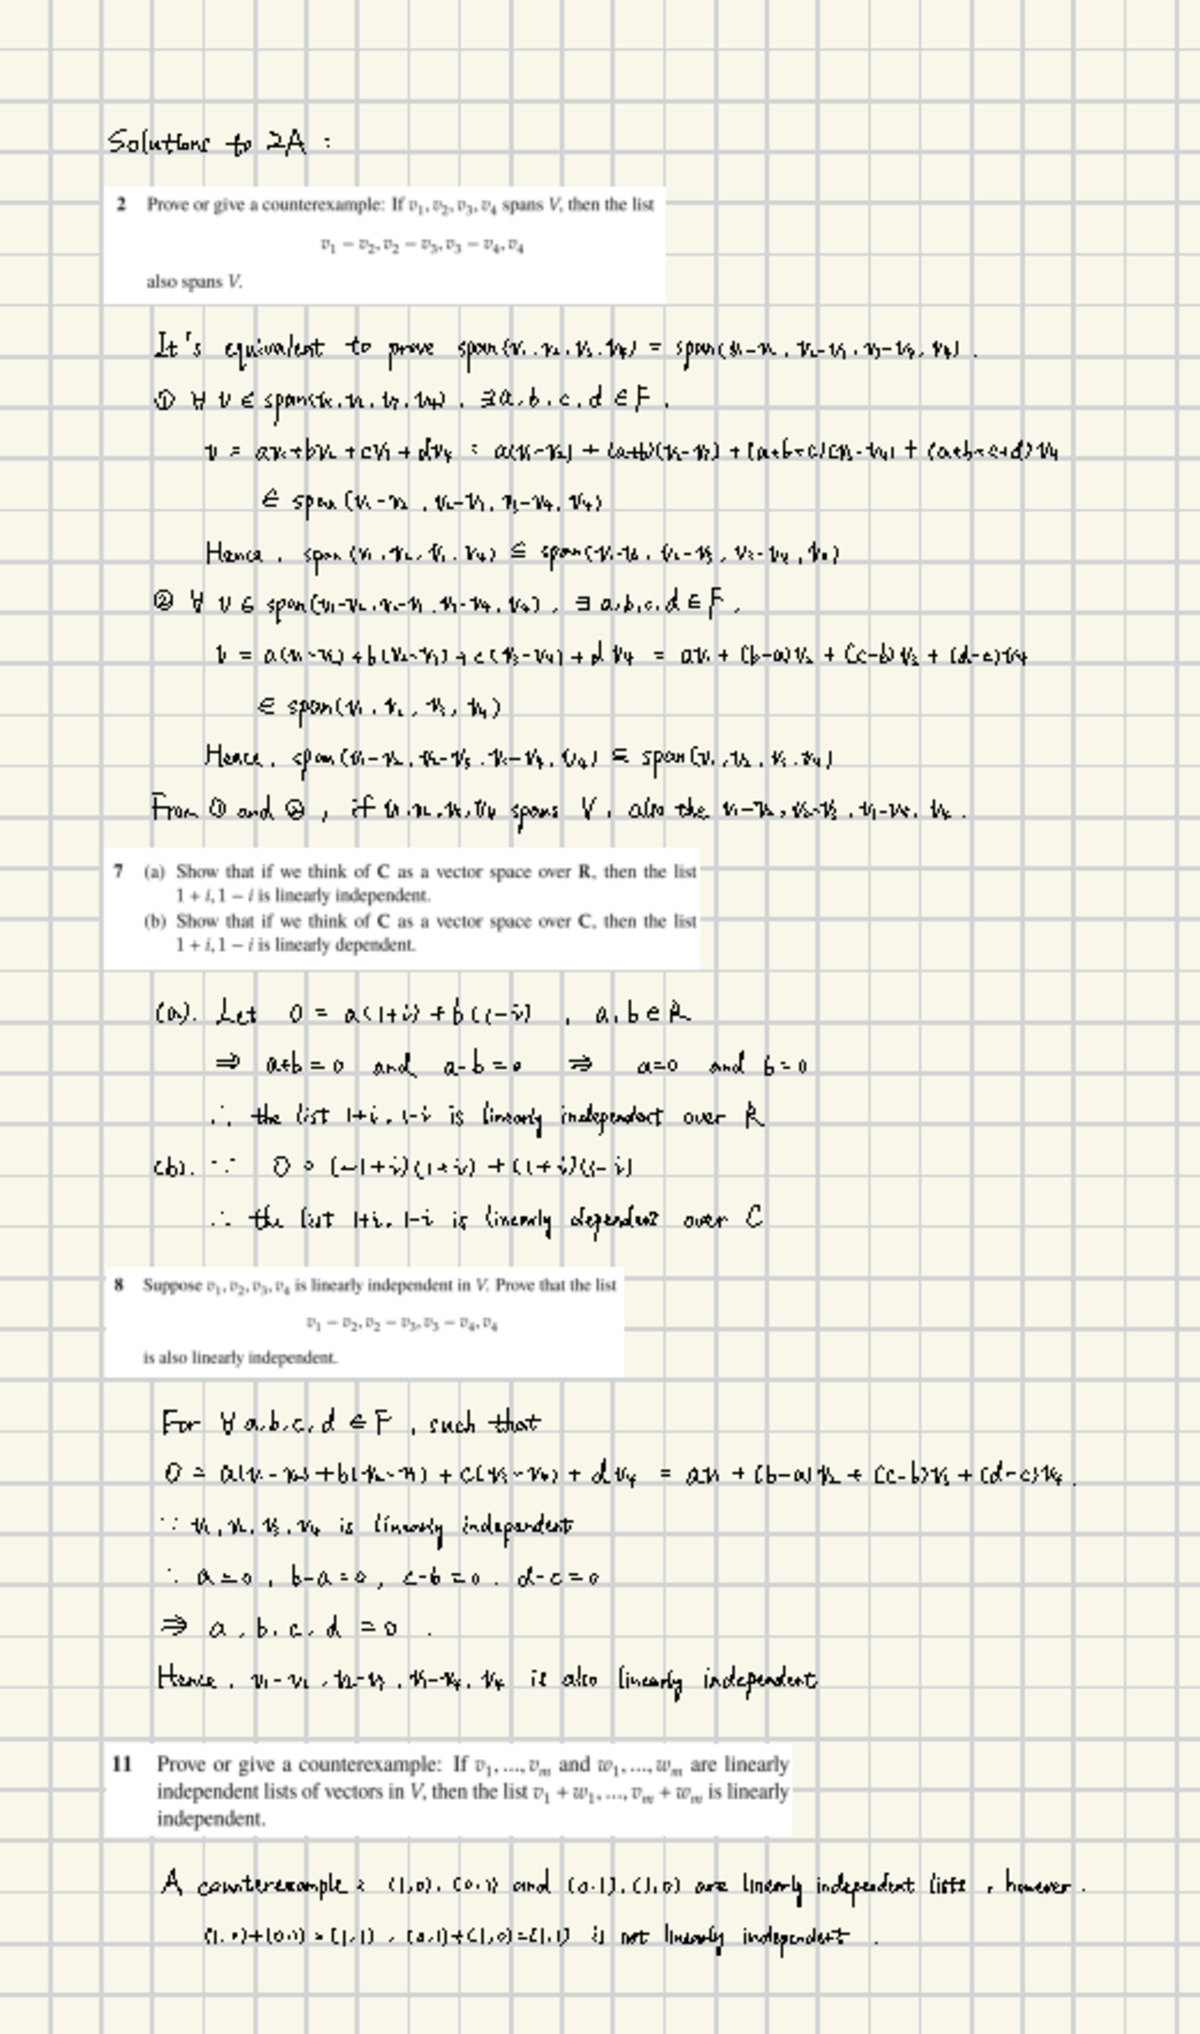 Solutions to 2A :
2 Prove or give a counterexample: If v₁, v₂, v₃, v₄ spans V, then the list
v₁ − v₂, v₂ − v₃, v₃ − v₄, v₄
also spans V.
It's equivalent to prove span(v₁, v₂, v₃, v₄) = span(v₁−v₂, v₂−v₃, v₃−v₄, v₄).
① ∀ v ∈ span(v₁, v₂, v₃, v₄), ∃ a, b, c, d ∈ F,
v = av₁+bv₂+cv₃+dv₄ = a(v₁−v₂) + (a+b)(v₂−v₃) + (a+b+c)(v₃−v₄) + (a+b+c+d)v₄
∈ span(v₁−v₂, v₂−v₃, v₃−v₄, v₄)
Hence, span(v₁, v₂, v₃, v₄) ⊆ span(v₁−v₂, v₂−v₃, v₃−v₄, v₄)
② ∀ v ∈ span(v₁−v₂, v₂−v₃, v₃−v₄, v₄), ∃ a, b, c, d ∈ F,
v = a(v₁−v₂) + b(v₂−v₃) + c(v₃−v₄) + dv₄ = av₁ + (b−a)v₂ + (c−b)v₃ + (d−c)v₄
∈ span(v₁, v₂, v₃, v₄)
Hence, span(v₁−v₂, v₂−v₃, v₃−v₄, v₄) ⊆ span(v₁, v₂, v₃, v₄)
From ① and ②, if v₁, v₂, v₃, v₄ spans V, also the v₁−v₂, v₂−v₃, v₃−v₄, v₄.
7 (a) Show that if we think of C as a vector space over R, then the list
1 + i, 1 − i is linearly independent.
(b) Show that if we think of C as a vector space over C, then the list
1 + i, 1 − i is linearly dependent.
(a). Let 0 = a(1+i) + b(1−i), a, b ∈ R
⇒ a+b=0 and a−b=0 ⇒ a=0 and b=0
∴ the list 1+i, 1−i is linearly independent over R
(b). ∵ 0 = (−1+i)(1+i) + (1+i)(1−i)
∴ the list 1+i, 1−i is linearly dependent over C
8 Suppose v₁, v₂, v₃, v₄ is linearly independent in V. Prove that the list
v₁ − v₂, v₂ − v₃, v₃ − v₄, v₄
is also linearly independent.
For ∀ a, b, c, d ∈ F, such that
0 = a(v₁−v₂) + b(v₂−v₃) + c(v₃−v₄) + dv₄ = av₁ + (b−a)v₂ + (c−b)v₃ + (d−c)v₄.
∵ v₁, v₂, v₃, v₄ is linearly independent
∴ a=0, b−a=0, c−b=0, d−c=0
⇒ a, b, c, d = 0.
Hence, v₁−v₂, v₂−v₃, v₃−v₄, v₄ is also linearly independent
11 Prove or give a counterexample: If v₁, ..., vₘ and w₁, ..., wₘ are linearly
independent lists of vectors in V, then the list v₁ + w₁, ..., vₘ + wₘ is linearly
independent.
A counterexample: (1,0), (0,1) and (0,1), (1,0) are linearly independent lists, however.
(1,0)+(0,1)=(1,1), (0,1)+(1,0)=(1,1) is not linearly independent.